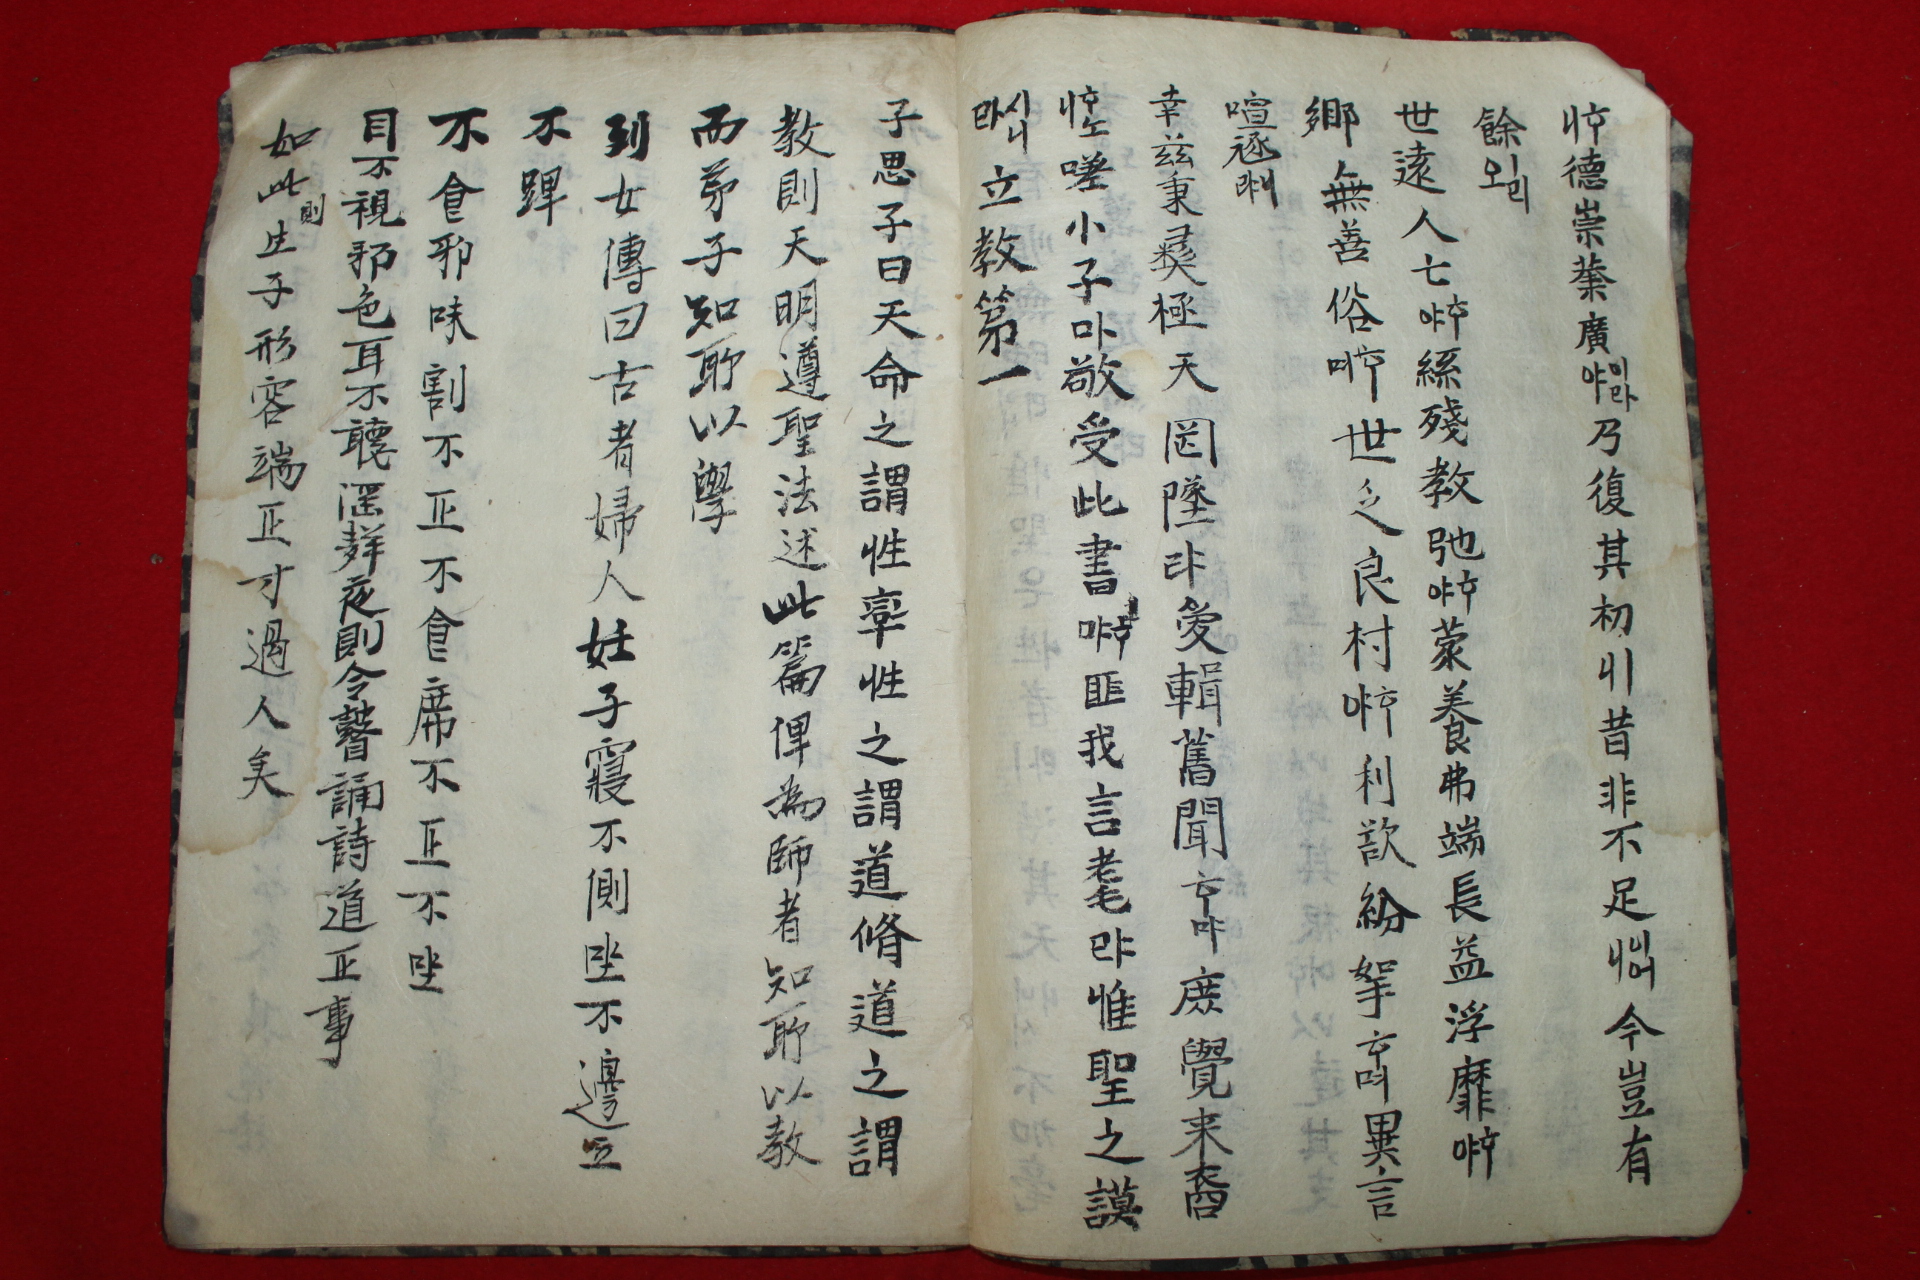 德崇業廣이라야乃復其初ㅣ니昔非不足이어니今豈有
餘ㅣ오리
世遠人亡하야絲殘教弛하야蒙養弗端長益浮靡하야
鄉無善俗하며世乏良村하야利欲紛拏하며異言
喧逐
幸茲秉彛極天罔墜라爰輯舊聞하야庶覺來裔
하노嗟小子아敬受此書하야匪我言耄라惟聖之謨
시니라立教第一
子思子曰天命之謂性率性之謂道脩道之謂
教則天明遵聖法述此篇俾為師者知所以教
而弟子知所以學
列女傳曰古者婦人妊子寢不側坐不邊立
不蹕
不食邪味割不正不食席不正不坐
目不視邪色耳不聽淫聲夜則令瞽誦詩道正事
如此則生子形容端正才過人矣